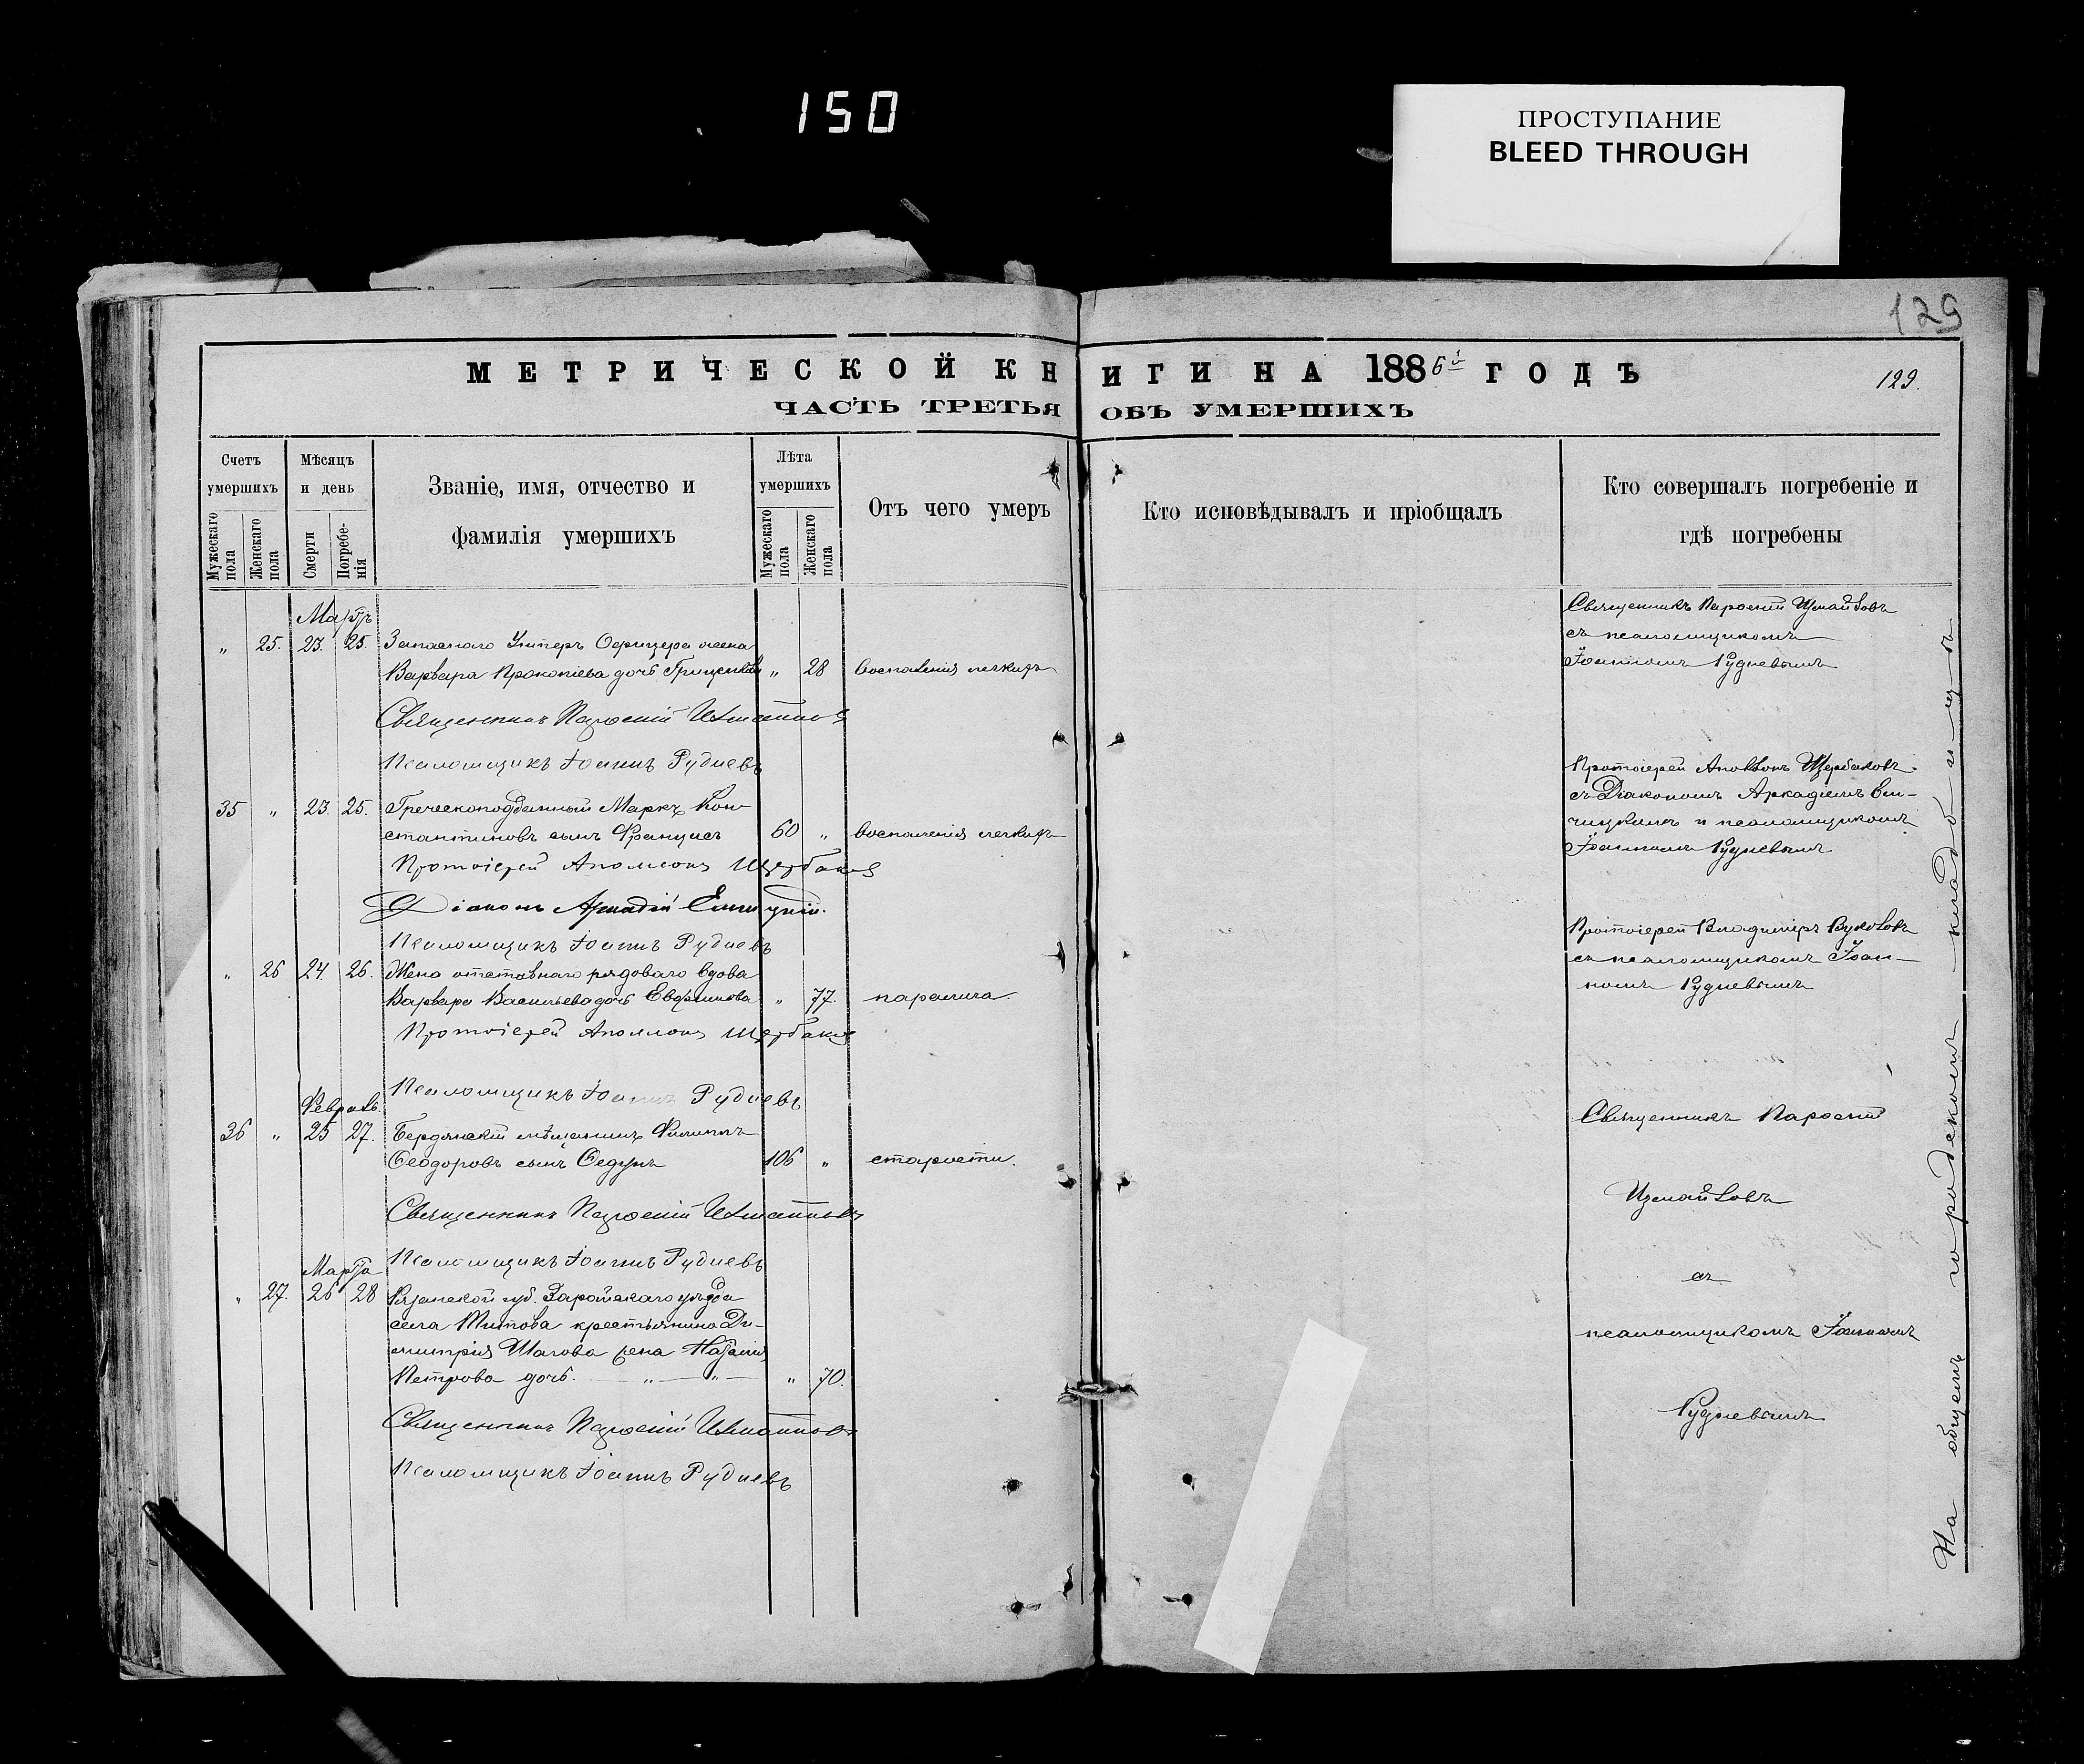 150
ПРОСТУПАНИЕ
BLEED THROUGH
129
МЕТРИЧЕСКОЙ КНИГИ НА 1886й ГОДЪ
129.
ЧАСТЬ ТРЕТЬЯ ОБЪ УМЕРШИХЪ
Счетъ умершихъ
Мужескаго пола
Женскаго пола
Мѣсяцъ и день
Смерти
Погребенія
Званіе, имя, отчество и
фамилія умершихъ
Лѣта умершихъ
Мужескаго пола
Женскаго пола
Отъ чего умеръ
Кто исповѣдывалъ и пріобщалъ
Кто совершалъ погребеніе и
гдѣ погребены
Мартъ
" 25. 23. 25. Запаснаго Унтеръ Офицера жена
Варвара Прокопіева дочь " 28 воспаленія легкихъ
Священникъ Парѳеній Измаиловъ
Псаломщикъ Іоаннъ Рудневъ
35 " 23. 25. Греческоподданный Маркъ Кон-
стантиновъ сынъ 60 " воспаленія легкихъ
Протоіерей Аполлонъ Щербаковъ
Діаконъ Аркадій
Псаломщикъ Іоаннъ Рудневъ
" 26 24. 26. Жена отставнаго рядоваго вдова
Варвара Васильева дочь Евфимова " 77. паралича.
Протоіерей Аполлонъ Щербаковъ
Псаломщикъ Іоаннъ Рудневъ
Февраль.
36 " 25 27. Бердянскій мѣщанинъ Филиппъ
Ѳеодоровъ сынъ Ѳедунъ 106 " старости.
Священникъ Парѳеній Измаиловъ
Псаломщикъ Іоаннъ Рудневъ
Марта
" 27. 26 28 Рязанской губ. Зарайскаго уѣзда
села Титова крестьянина Ди-
митрія Шагова жена Наталія
Петрова дочь. " " " 70.
Священникъ Парѳеній Измаиловъ
Псаломщикъ Іоаннъ Рудневъ
Священникъ Парѳеній Измаиловъ
съ псаломщикомъ
Іоанномъ Рудневымъ
Протоіерей Аполлонъ Щербаковъ
съ Діакономъ Аркадіемъ Ели-
и псаломщикомъ
Іоанномъ Рудневымъ
Протоіерей Владиміръ
съ псаломщикомъ Іоан-
номъ Рудневымъ
Священникъ Парѳеній
Измаиловъ
съ
псаломщикомъ Іоанномъ
Рудневымъ
На общемъ городскомъ кладбищѣ